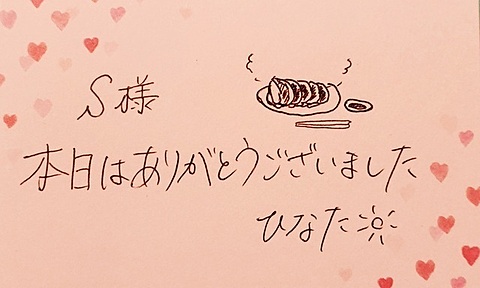 S様
本日はありがとうございました
ひなた